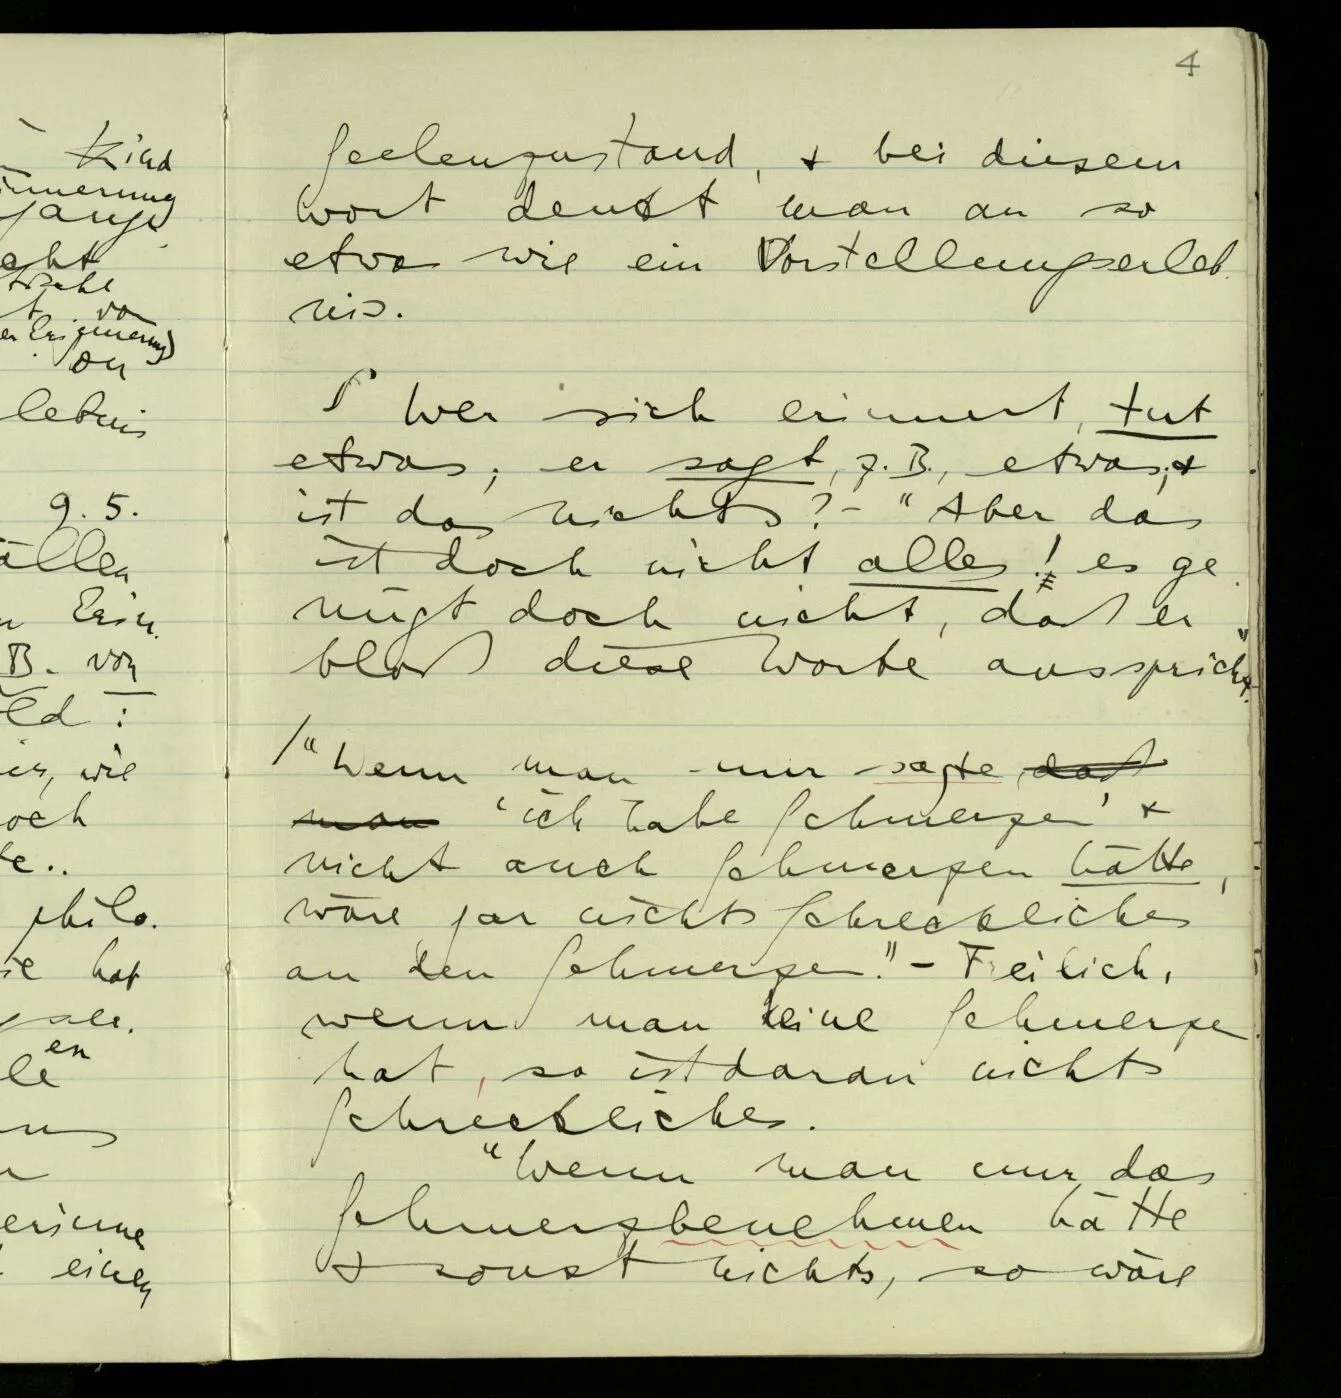 4
Kind
innerung
gange
von
der Erinnerung)
an
lebnis
9.5.
ällen
Erin
B. von
ld :
wie
och
te..
philo.
sie hat
en
le
erinne
einen
Seelenzustand, & bei diesem
Wort denkt man an so
etwas wie ein Vorstellungserleb
nis.
S Wer sich erinnert, tut
etwas; er sagt, z.B., etwas; &
ist das nichts? – "Aber das
ist doch nicht alles! es ge
nügt doch nicht, daß er
bloß diese Worte ausspricht."
/ "Wenn man nur sagte daß
man 'ich habe Schmerzen' &
nicht auch Schmerzen hätte,
wäre gar nichts Schreckliches
an den Schmerzen." – Freilich,
wenn man keine Schmerzen
hat, so ist daran nichts
Schreckliches.
"Wenn man nur das
Schmerzbenehmen hätte
& sonst nichts, so wäre